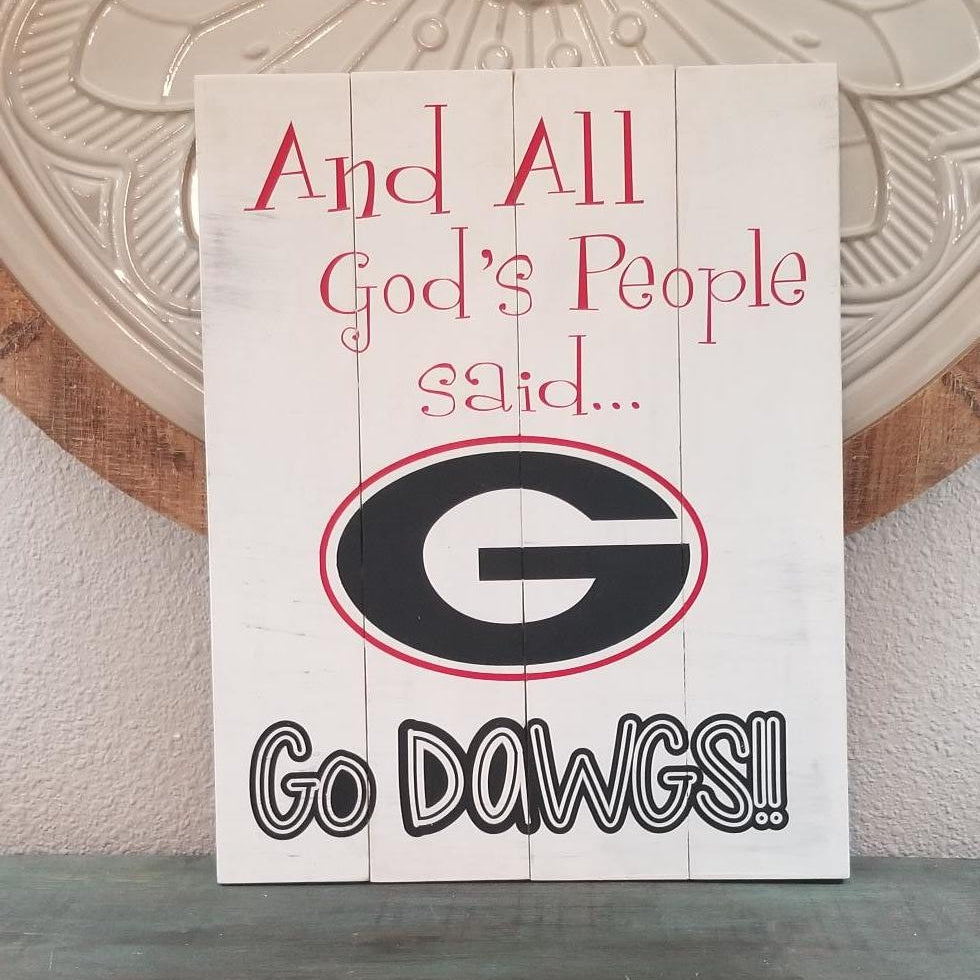 And All
God's People
said...
G
Go DAWGS!!